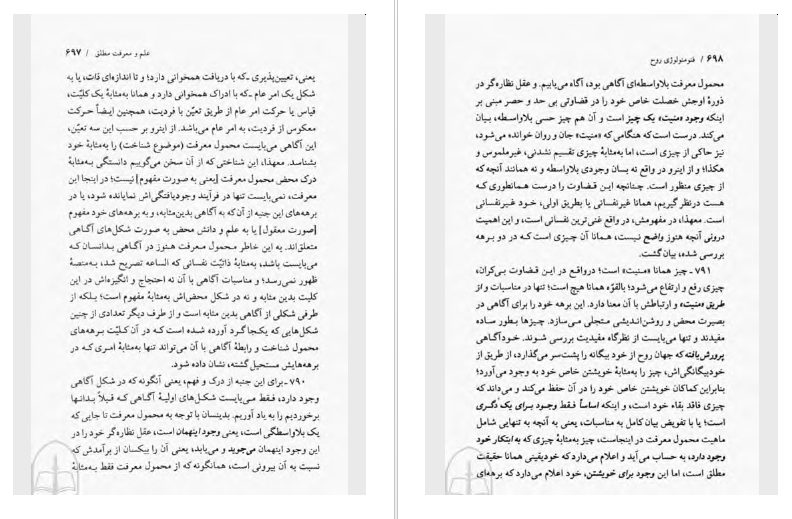 علم و معرفت مطلق / ۶۹۷
یعنی، تعیین‌پذیری ـ‌که با دریافت همخوانی دارد؛ و تا اندازه‌ای ذات، یا به
شکل یک امر عام ـ‌که با ادراک همخوانی دارد و همانا به‌مثابهٔ یک کلیّت،
قیاس یا حرکت امر عام از طریق تعیّن با فردیت، همچنین ایضاً حرکت
معکوس از فردیت، به امر عام می‌باشد. از اینرو بر حسب این سه تعیّن،
این آگاهی می‌بایست محمول معرفت (موضوع شناخت) را به‌مثابهٔ خود
بشناسد. معهذا، این شناختی که از آن سخن می‌گوییم دانستگی به‌مثابهٔ
درک محض محمول معرفت [یعنی به صورت مفهوم] نیست؛ در اینجا این
معرفت، نمی‌بایست تنها در فرآیند وجودیافتگی‌اش نمایانده شود، یا در
برهه‌های این جنبه از آن که به آگاهی بدین‌مثابه، و به برهه‌های خود مفهوم
[صورت معقول] یا به علم و دانش محض به صورت شکل‌های آگاهی
متعلق‌اند. به این خاطر محمول معرفت هنوز در آگاهی بدانسان که
می‌بایست باشد، به‌مثابهٔ ذاتیّت نفسانی که الساعه تصریح شد، به‌منصهٔ
ظهور نمی‌رسد؛ و مناسبات آگاهی با آن نه احتجاج و انگیزه‌اش در این
کلیت بدین مثابه و نه در شکل محض‌اش به‌مثابهٔ مفهوم است؛ بلکه از
طرفی شکلی از آگاهی بدین مثابه است و از طرف دیگر تعدادی از چنین
شکل‌هایی که یکجا گرد آورده شده است که در آن کلیّت برهه‌های
محمول شناخت و رابطهٔ آگاهی با آن می‌تواند تنها به‌مثابهٔ امری که در
برهه‌هایش مستحیل گشته، نشان داده شود.
۷۹۰ ـ برای این جنبه از درک و فهم، یعنی آنگونه که در شکل آگاهی
وجود دارد، فقط می‌بایست شکل‌های اولیهٔ آگاهی که قبلاً بدانها
برخوردیم را به یاد آوریم. بدینسان با توجه به محمول معرفت تا جایی که
یک بلاواسطگی است، یعنی وجود اینهمان است، عقل نظاره‌گر خود را در
این وجود اینهمان می‌جوید و می‌یابد، یعنی آن را بیکسان از برآمدش که
نسبت به آن بیرونی است، همانگونه که از محمول معرفت فقط به‌مثابهٔ
۶۹۸ / فنومنولوژی روح
محمول معرفت بلاواسطه‌ای آگاهی بود، آگاه می‌یابیم. و عقل نظاره‌گر در
ذورهٔ اوجش خصلت خاص خود را در قضاوتی بی حد و حصر مبنی بر
اینکه وجود «منیت» یک چیز است و آن هم چیز حسی بلاواسطه، بیان
می‌کند. درست است که هنگامی که «منیت» جان و روان خوانده می‌شود،
نیز حاکی از چیزی است، اما به‌مثابهٔ چیزی تقسیم نشدنی، غیرملموس و
هکذا؛ و از اینرو در واقع نه بسان وجودی بلاواسطه و نه همانند آنچه که
از چیزی منظور است. چنانچه این قضاوت را درست همانطوری که
هست درنظر گیریم، همانا غیرنفسانی یا بطریق اولی، خود غیرنفسانی
است. معهذا، در مفهومش، در واقع غنی‌ترین نفسانی است، و این اهمیت
درونی آنچه هنوز واضح نیست، همانا آن چیزی است که در دو برهه
بررسی شده، بیان گشت.
۷۹۱ ـ چیز همانا «منیت» است؛ درواقع در این قضاوت بی‌کران،
چیزی رفع و ارتفاع می‌شود؛ بالقوّه همانا هیچ است؛ تنها در مناسبات و از
طریق «منیت» و ارتباطش با آن معنا دارد. این برهه خود را برای آگاهی در
بصیرت محض و روشن‌اندیشی متجلی می‌سازد. چیزها بطور ساده
مفیدند و تنها می‌بایست از نظرگاه مفیدیت بررسی شوند. خودآگاهی
پرورش‌یافته که جهان روح از خود بیگانه را پشت‌سر می‌گذارد، از طریق از
خودبیگانگی‌اش، چیز را به‌مثابهٔ خویشتن خاص خود به وجود می‌آورد؛
بنابراین کماکان خویشتن خاص خود را در آن حفظ می‌کند و می‌داند که
چیزی فاقد بقاء خود است، و اینکه اساساً فقط وجود برای یک دگری
است؛ یا با تفویض بیان کامل به مناسبات، یعنی به آنچه به تنهایی شامل
ماهیت محمول معرفت در اینجاست، چیز به‌مثابهٔ چیزی که به ابتکار خود
وجود دارد، به حساب می‌آید و اعلام می‌دارد که خودیقینی همانا حقیقت
مطلق است، اما این وجود برای خویشتن، خود اعلام می‌دارد که برهه‌ای